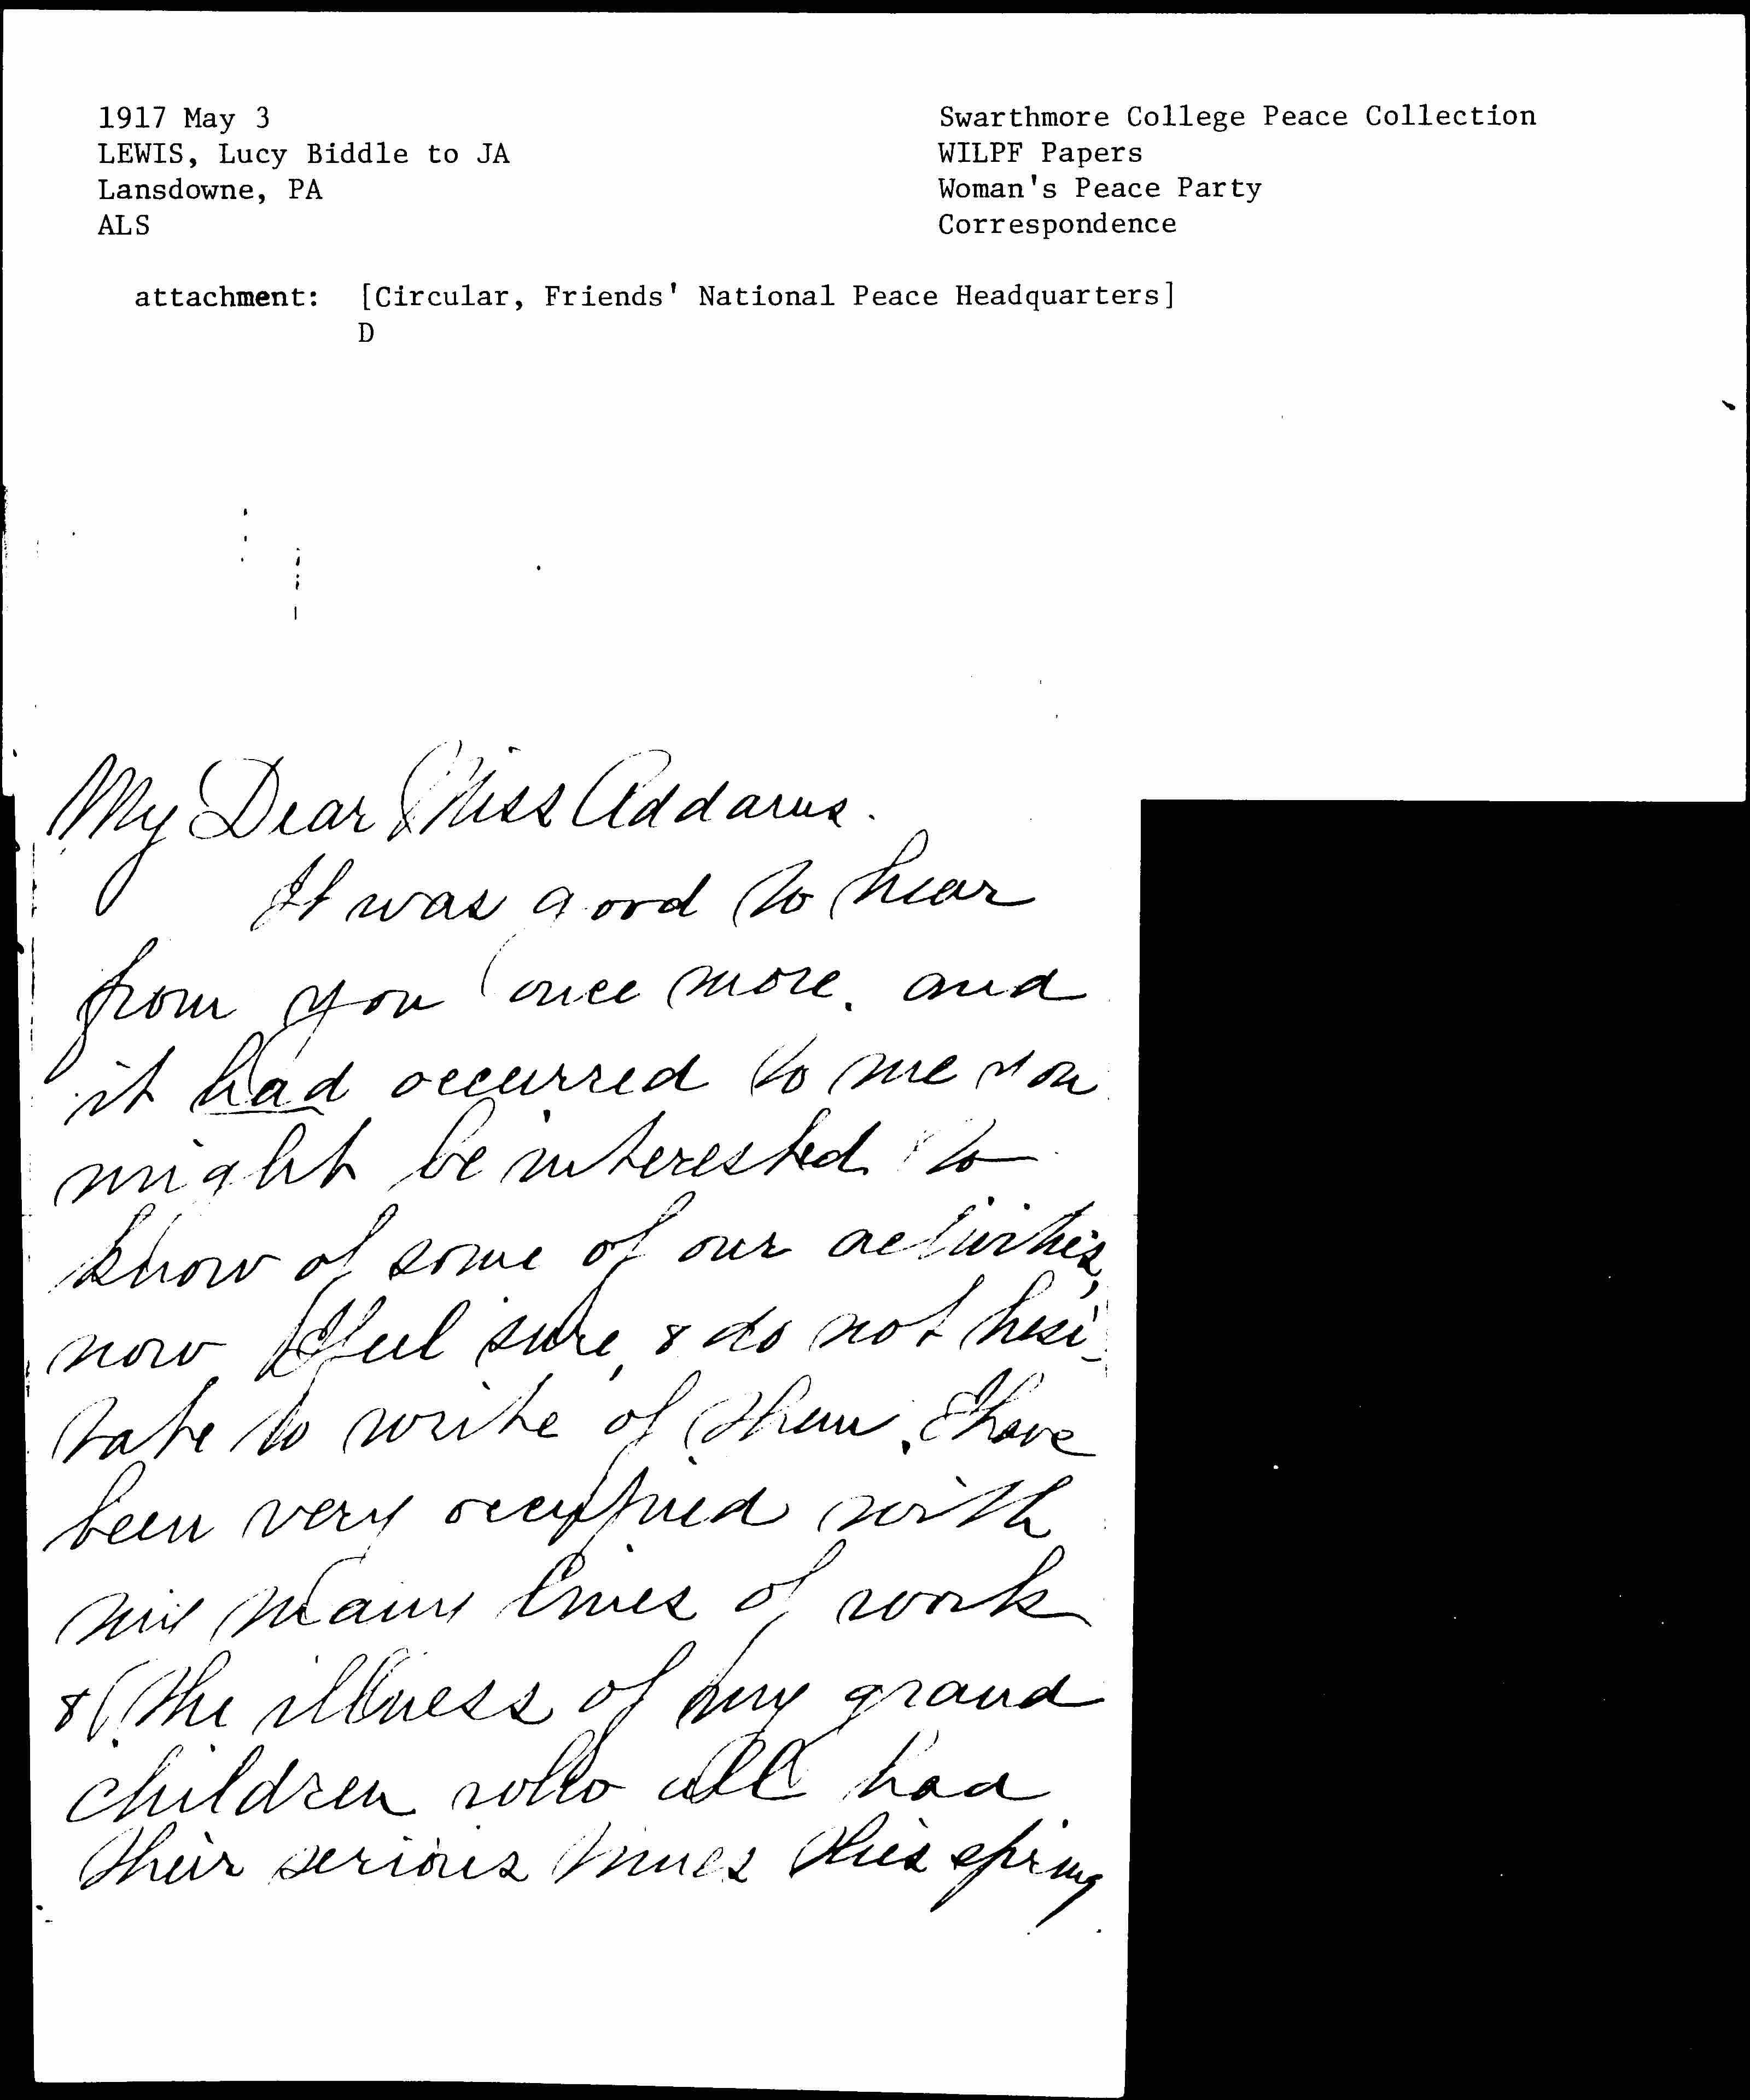 1917 May 3
LEWIS, Lucy Biddle to JA
Lansdowne, PA
ALS
Swarthmore College Peace Collection
WILPF Papers
Woman's Peace Party
Correspondence
attachment: [Circular, Friends' National Peace Headquarters]
D
My Dear Miss Addams.
It was good to hear
from you once more. and
it had occurred to me you
might be interested to
know of some of our activities,
now I feel sure, & do not hesi-
tate to write of them. I have
been very occupied with
my many lines of work
& the illness of my grand
children who all had
their serious times this spring